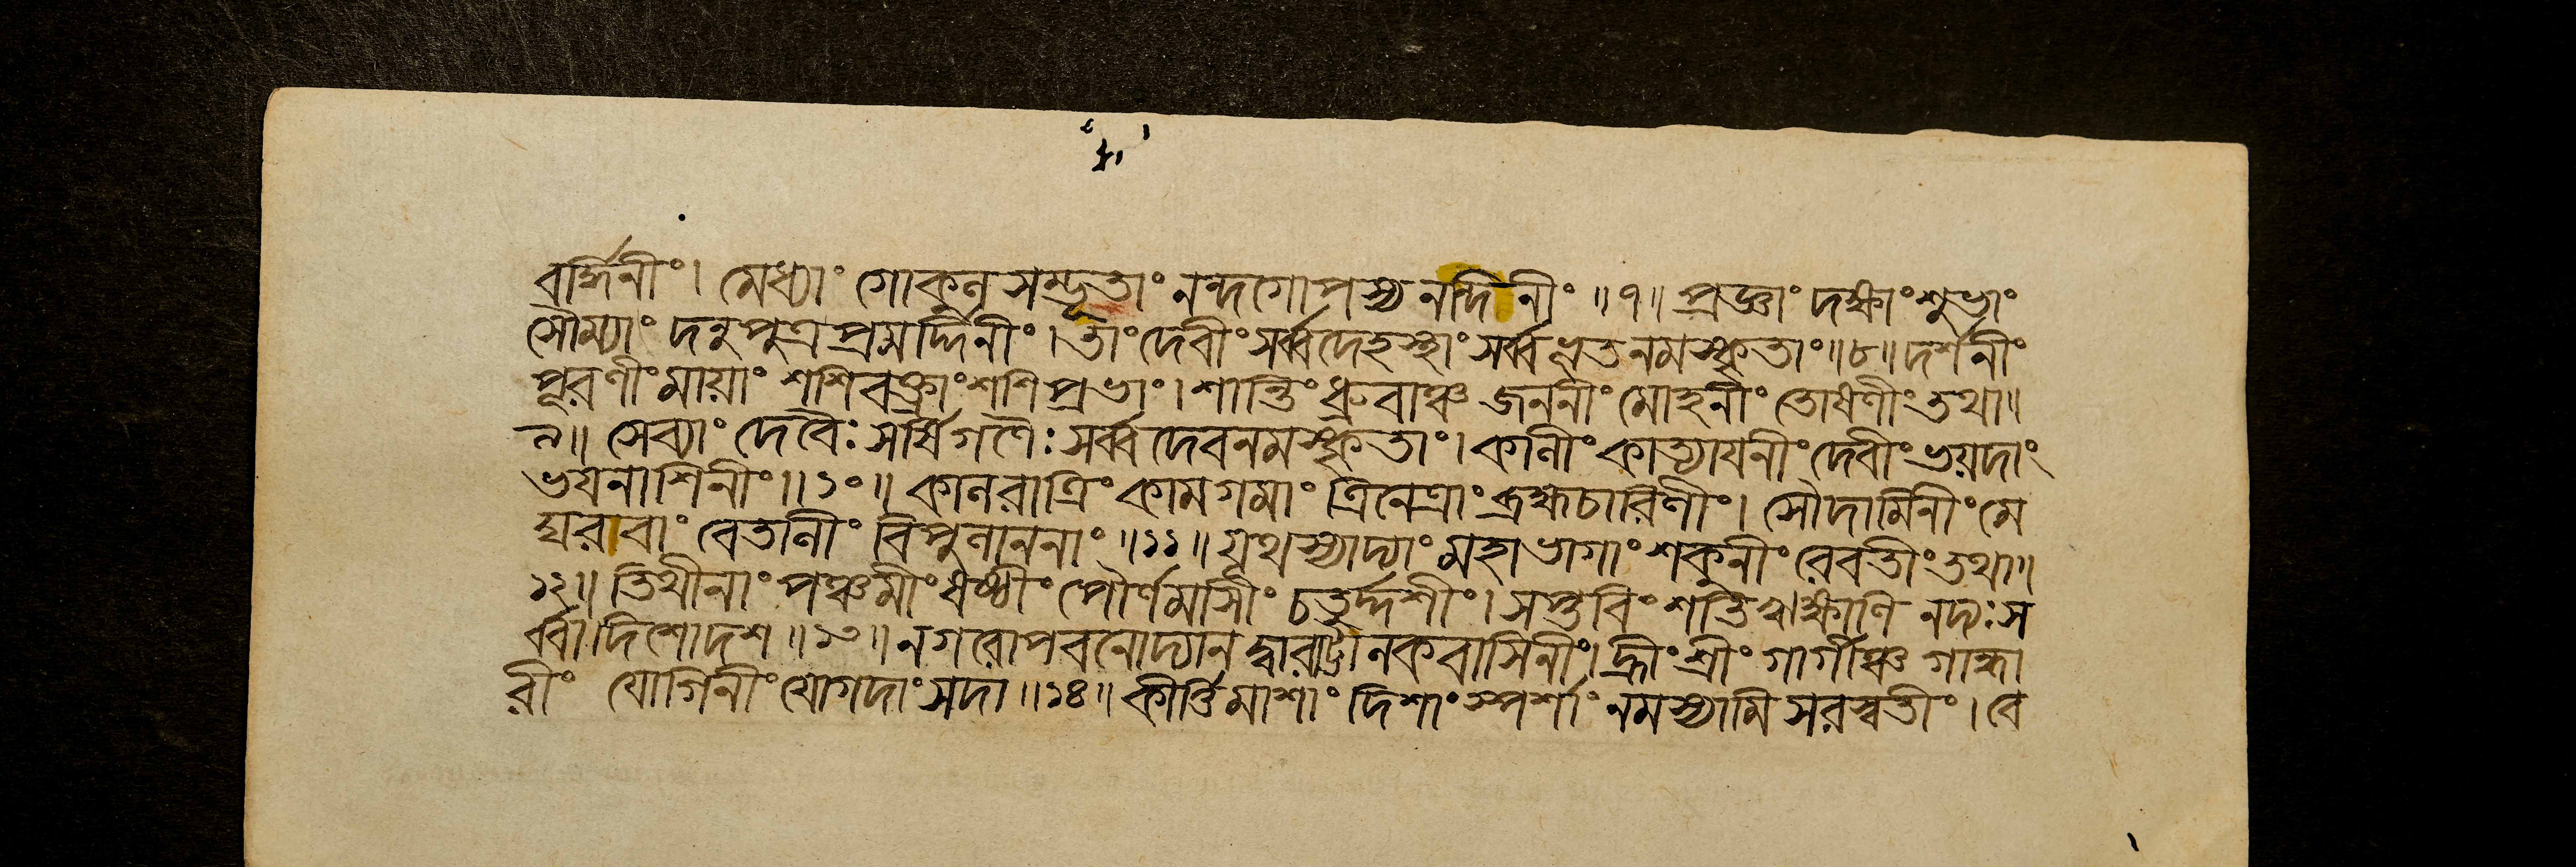 বর্দ্ধিনীং। মেধ্যাং গোকুল সম্ভূতাং নন্দগোপস্য নন্দিনীং॥৭॥ প্রজ্ঞাং দক্ষাং শুভাং
সৌম্যাং দনুপুত্রপ্রমর্দ্দিনীং। তাং দেবীং সর্ব্বদেহস্থাং সর্ব্বভূতনমস্কৃতাং॥৮॥ দর্শনীং
পূরণীং মায়াং শশিবক্ত্রাং শশিপ্রভাং। শান্তিং ধ্রুবাঞ্চ জননীং মোহনীং তোষণীং তথা॥
৯॥ সেব্যাং দেবৈঃ সর্ষিগণৈঃ সর্ব্বদেবনমস্কৃতাং। কালীং কাত্যায়নীং দেবীং ভয়দাং
ভয়নাশিনীং॥১০॥ কালরাত্রিং কামগমাং ত্রিনেত্রাং ব্রহ্মচারিণীং। সৌদামিনীং মে
ঘরাবাং বেতালীং বিপুলাননাং॥১১॥ যূথস্যাদ্যাং মহাভাগাং শকুনীং রেবতীং তথা॥
১২॥ তিথীনাং পঞ্চমীং ষষ্ঠীং পৌর্ণমাসীং চতুর্দ্দশীং। সপ্তবিংশতিঋক্ষাণি নদ্যঃ স
র্ব্বা দিশোদশ॥১৩॥ নগরোপবনোদ্যান দ্বারাট্টালকবাসিনীং। হ্রীং শ্রীং গার্গীঞ্চ গান্ধা
রীং যোগিনীং যোগদাং সদা॥১৪॥ কীর্ত্তিমাশাং দিশাং স্পর্শাং নমস্যামি সরস্বতীং। বে